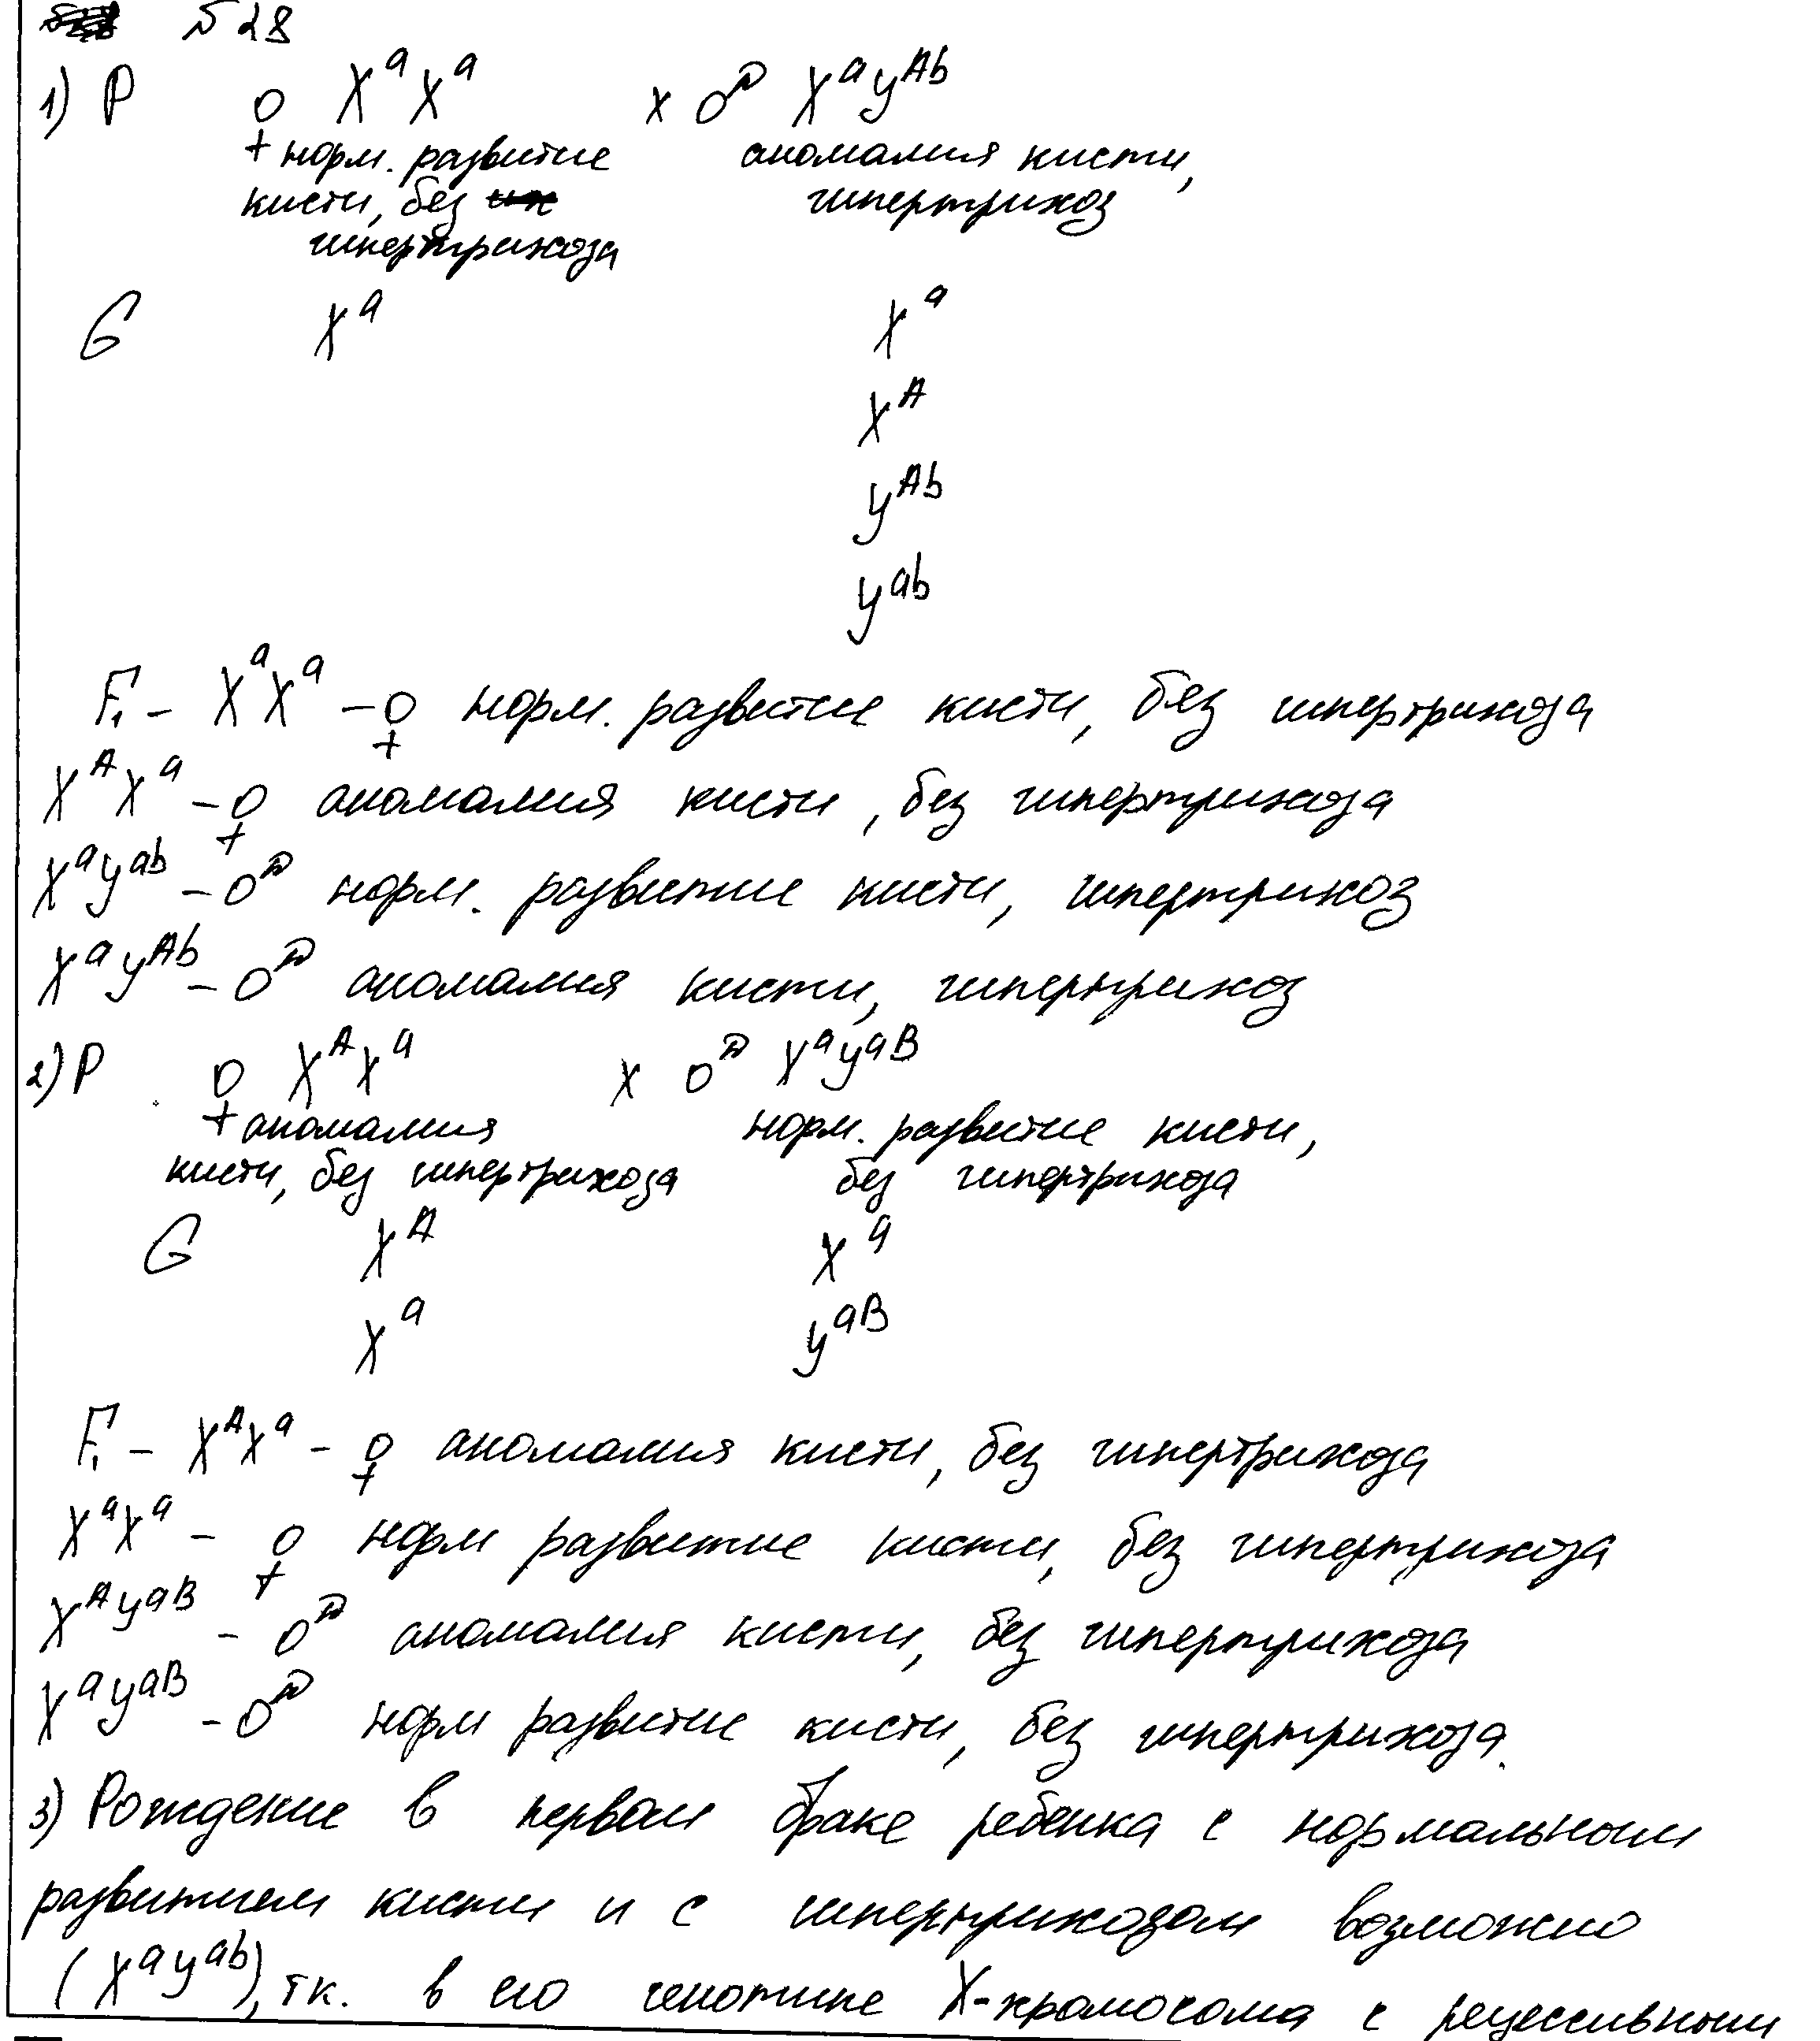 №28
1) P ♀ XᵃXᵃ x ♂ Xᵃyᴬᵇ
норм. развитие аномалия кисти,
кисти, без гипертрихоз
гипертрихоза
G Xᵃ Xᵃ
Xᴬ
yᴬᵇ
yᵃᵇ
F₁ – XᵃXᵃ – ♀ норм. развитие кисти, без гипертрихоза
XᴬXᵃ – ♀ аномалия кисти, без гипертрихоза
Xᵃyᵃᵇ – ♂ норм. развитие кисти, гипертрихоз
Xᵃyᴬᵇ – ♂ аномалия кисти, гипертрихоз
2) P ♀ XᴬXᵃ x ♂ Xᵃyᵃᴮ
аномалия норм. развитие кисти,
кисти, без гипертрихоза без гипертрихоза
G Xᴬ Xᵃ
Xᵃ yᵃᴮ
F₁ – XᴬXᵃ – ♀ аномалия кисти, без гипертрихоза
XᵃXᵃ – ♀ норм развитие кисти, без гипертрихоза
Xᴬyᵃᴮ – ♂ аномалия кисти, без гипертрихоза
Xᵃyᵃᴮ – ♂ норм развитие кисти, без гипертрихоза.
3) Рождение в первом браке ребенка с нормальным
развитием кисти и с гипертрихозом возможно
(Xᵃyᵃᵇ), тк. в его генотипе X-хромосома с рецессивным